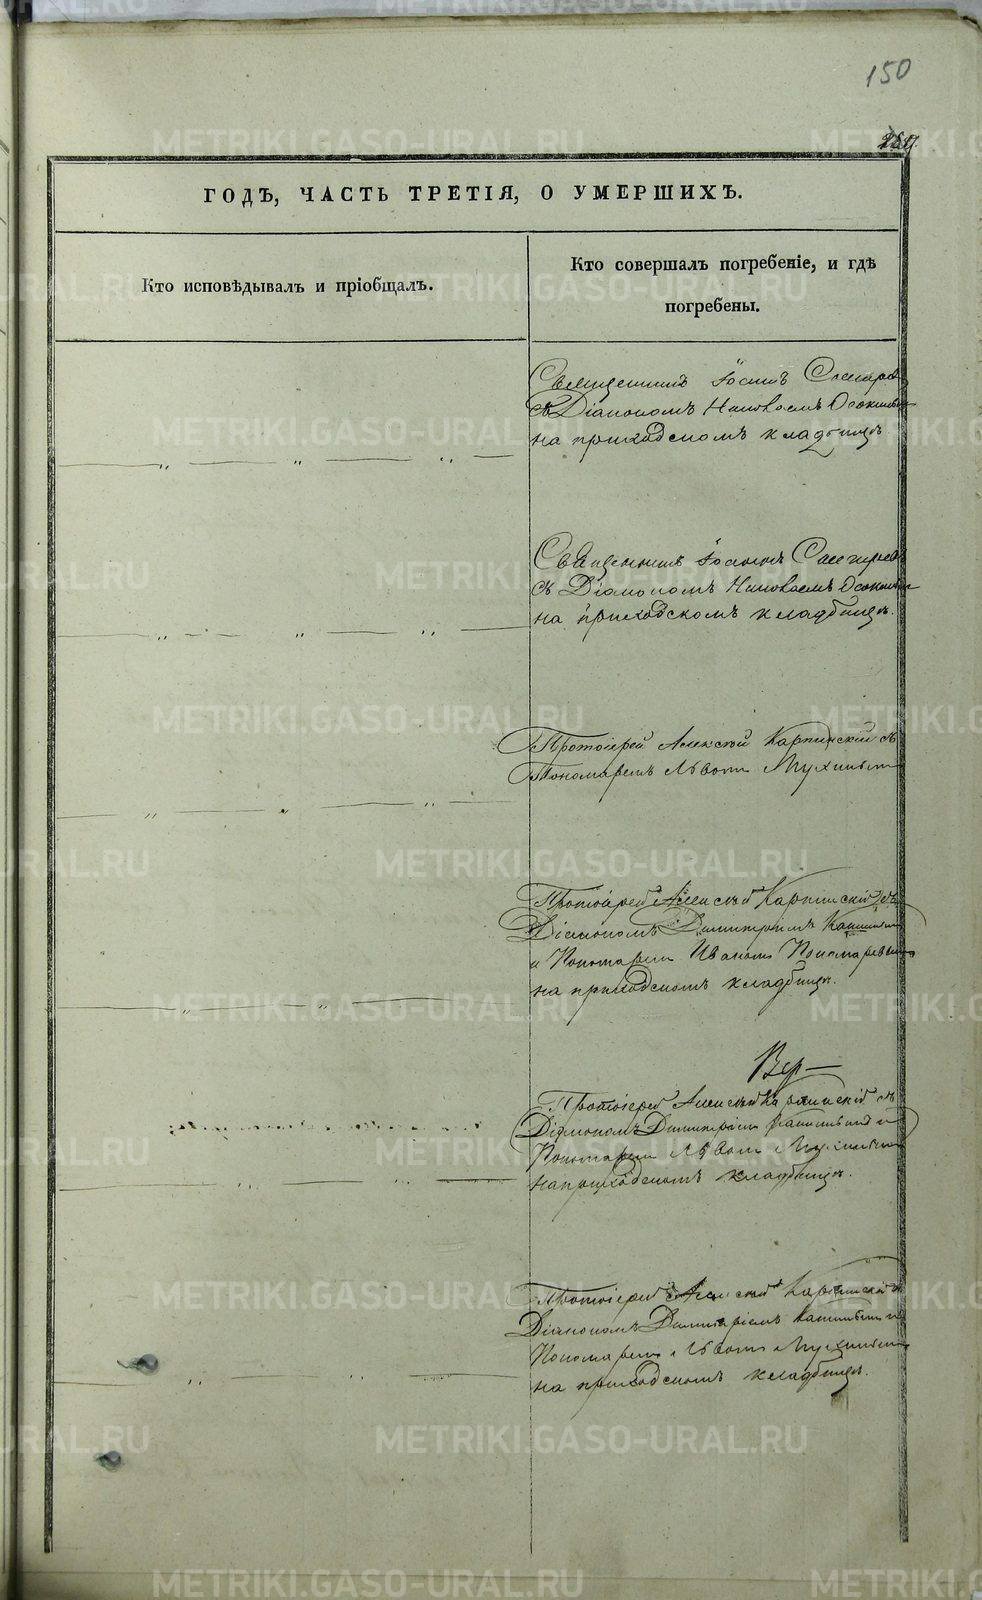 150
ГОДЪ, ЧАСТЬ ТРЕТІЯ, О УМЕРШИХЪ.
Кто исповѣдывалъ и пріобщалъ.
Кто совершалъ погребеніе, и гдѣ
погребены.
Священникъ Іоаннъ
съ Діакономъ Николаемъ Осокинымъ
на приходскомъ кладбищѣ
Священникъ Іоаннъ
съ Діакономъ Николаемъ Осокинымъ
на приходскомъ кладбищѣ.
Протоіерей Алексѣй Карпинскій съ
Пономаремъ Львомъ Мухинымъ
Протоіерей Алексѣй Карпинскій съ
Діакономъ Димитріемъ
и Пономаремъ Иваномъ Пономаревымъ
на приходскомъ кладбищѣ.
Протоіерей Алексѣй Карпинскій съ
Діакономъ Димитріемъ
Пономаремъ Львомъ Мухинымъ
на приходскомъ кладбищѣ.
Протоіерей Алексѣй Карпинскій съ
Діакономъ Димитріемъ
Пономаремъ Львомъ Мухинымъ
на приходскомъ кладбищѣ.
METRIKI.GASO-URAL.RU